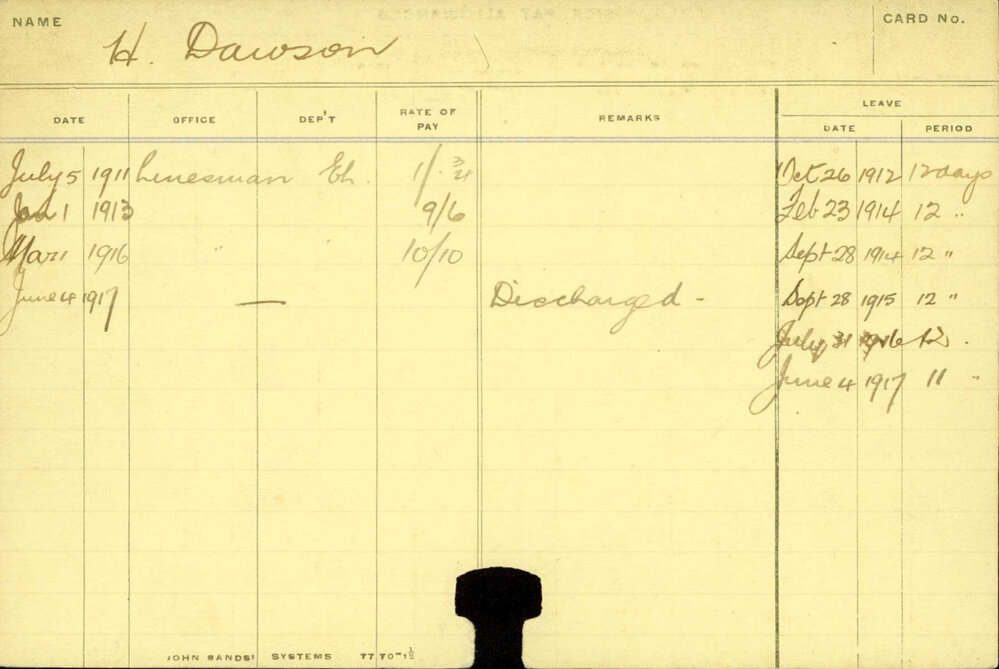 NAME
H. Dawson
CARD No.
DATE OFFICE DEP'T RATE OF PAY REMARKS LEAVE
DATE PERIOD
July 5 1911 Linesman Eh. 1/. 3/4 Oct 26 1912 12 days
Jan 1 1913 9/6 Feb 23 1914 12 "
Mar 1 1916 " 10/10 Sept 28 1914 12 "
June 4 1917 — Discharged - Sept 28 1915 12 "
July 31 1916 12 .
June 4 1917 11 "
JOHN SANDS' SYSTEMS 7770-